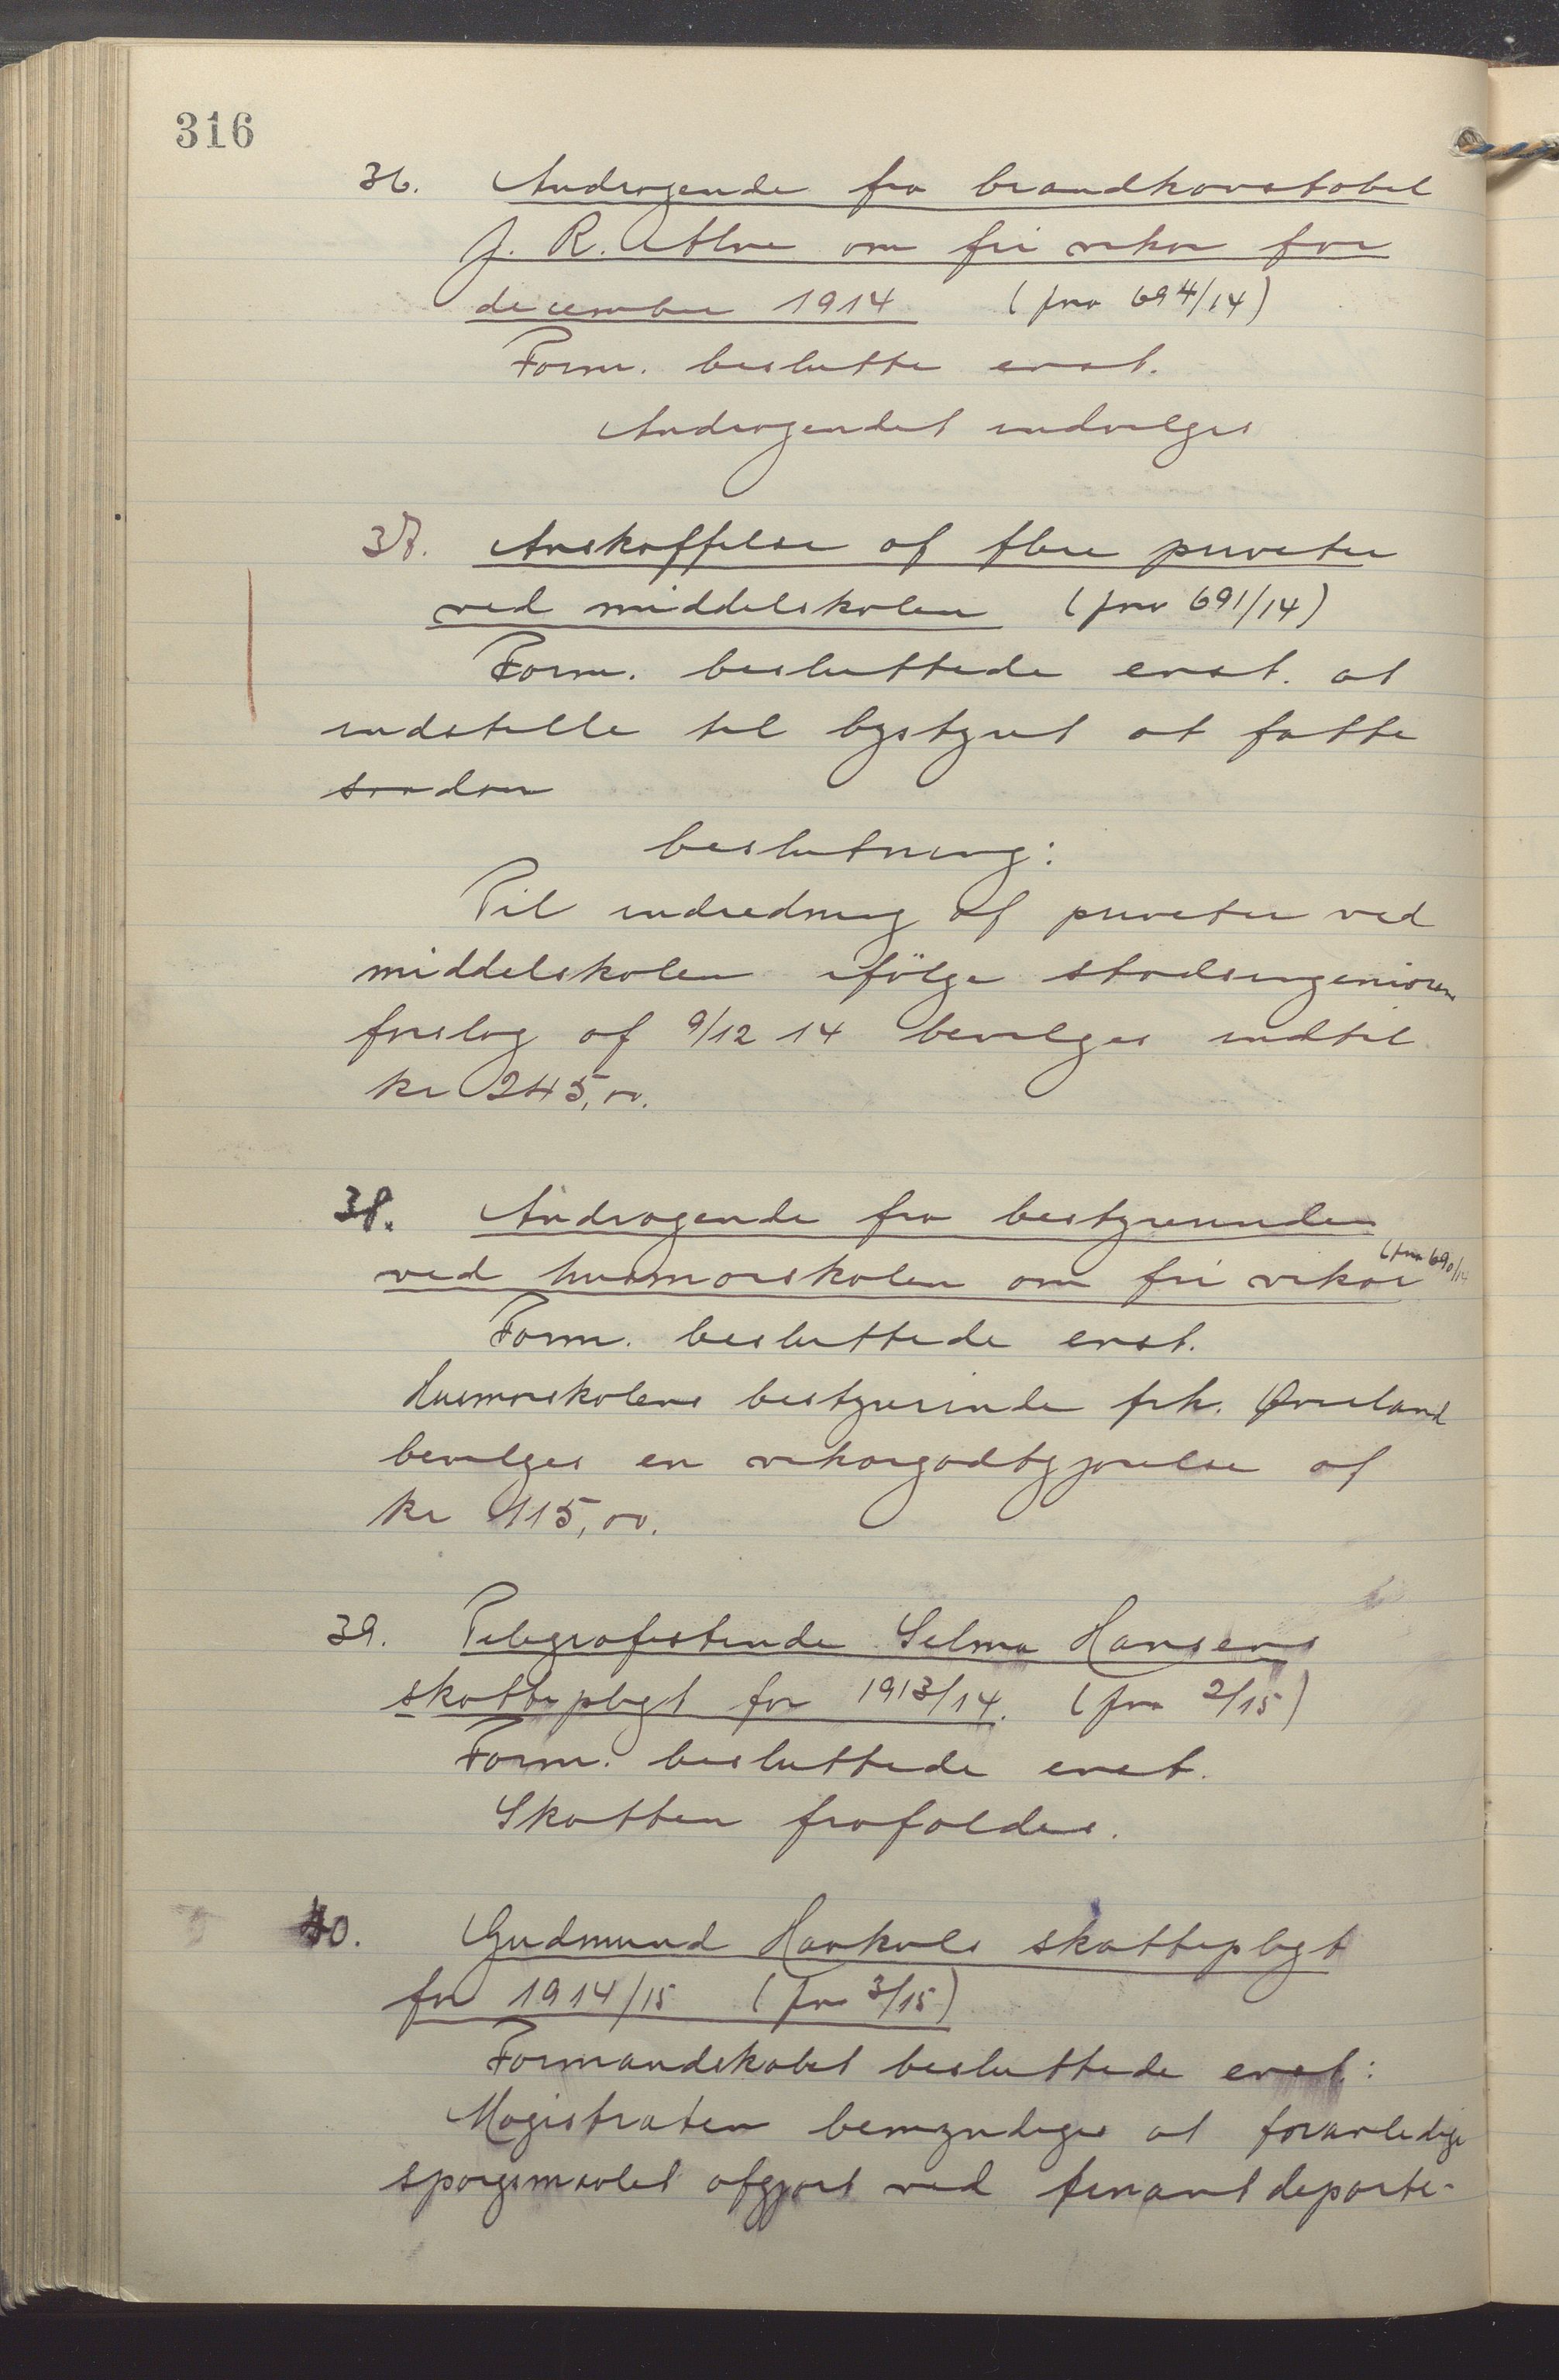 316
36. Andragende fra brandkonstabel
J. R. om fri vikar for
december 1914 (jnr 694/14)
Form. beslutte enst.
Andragendet indvilges
37. Anskaffelse af flere priveter
ved middelskolen (jnr 691/14)
Form. besluttede enst. at
indstille til bystyret at fatte
saadan
beslutning:
Til indredning af priveter ved
middelskolen ifölge stadsingeniörens
forslag af 9/12 14 bevilges indtil
kr 245,00.
38. Andragende fra bestyrerinden
ved husmorskolen om fri vikar (jnr 690/14
Form. besluttede enst.
Husmorskolens bestyrerinde frk. Øverland
bevilges en vikargodtgjørelse af
kr 115,00.
39. Telegrafistinde Selma Hansens
skattepligt for 1913/14. (jnr 2/15)
Form. besluttede enst.
Skatten frafaldes.
40. Gudmund Haukals skattepligt
for 1914/15 (jnr 3/15)
Formandskabet besluttede enst.:
Magistraten bemyndiges at foranledige
spørgsmaalet afgjort ved finantdeparte-